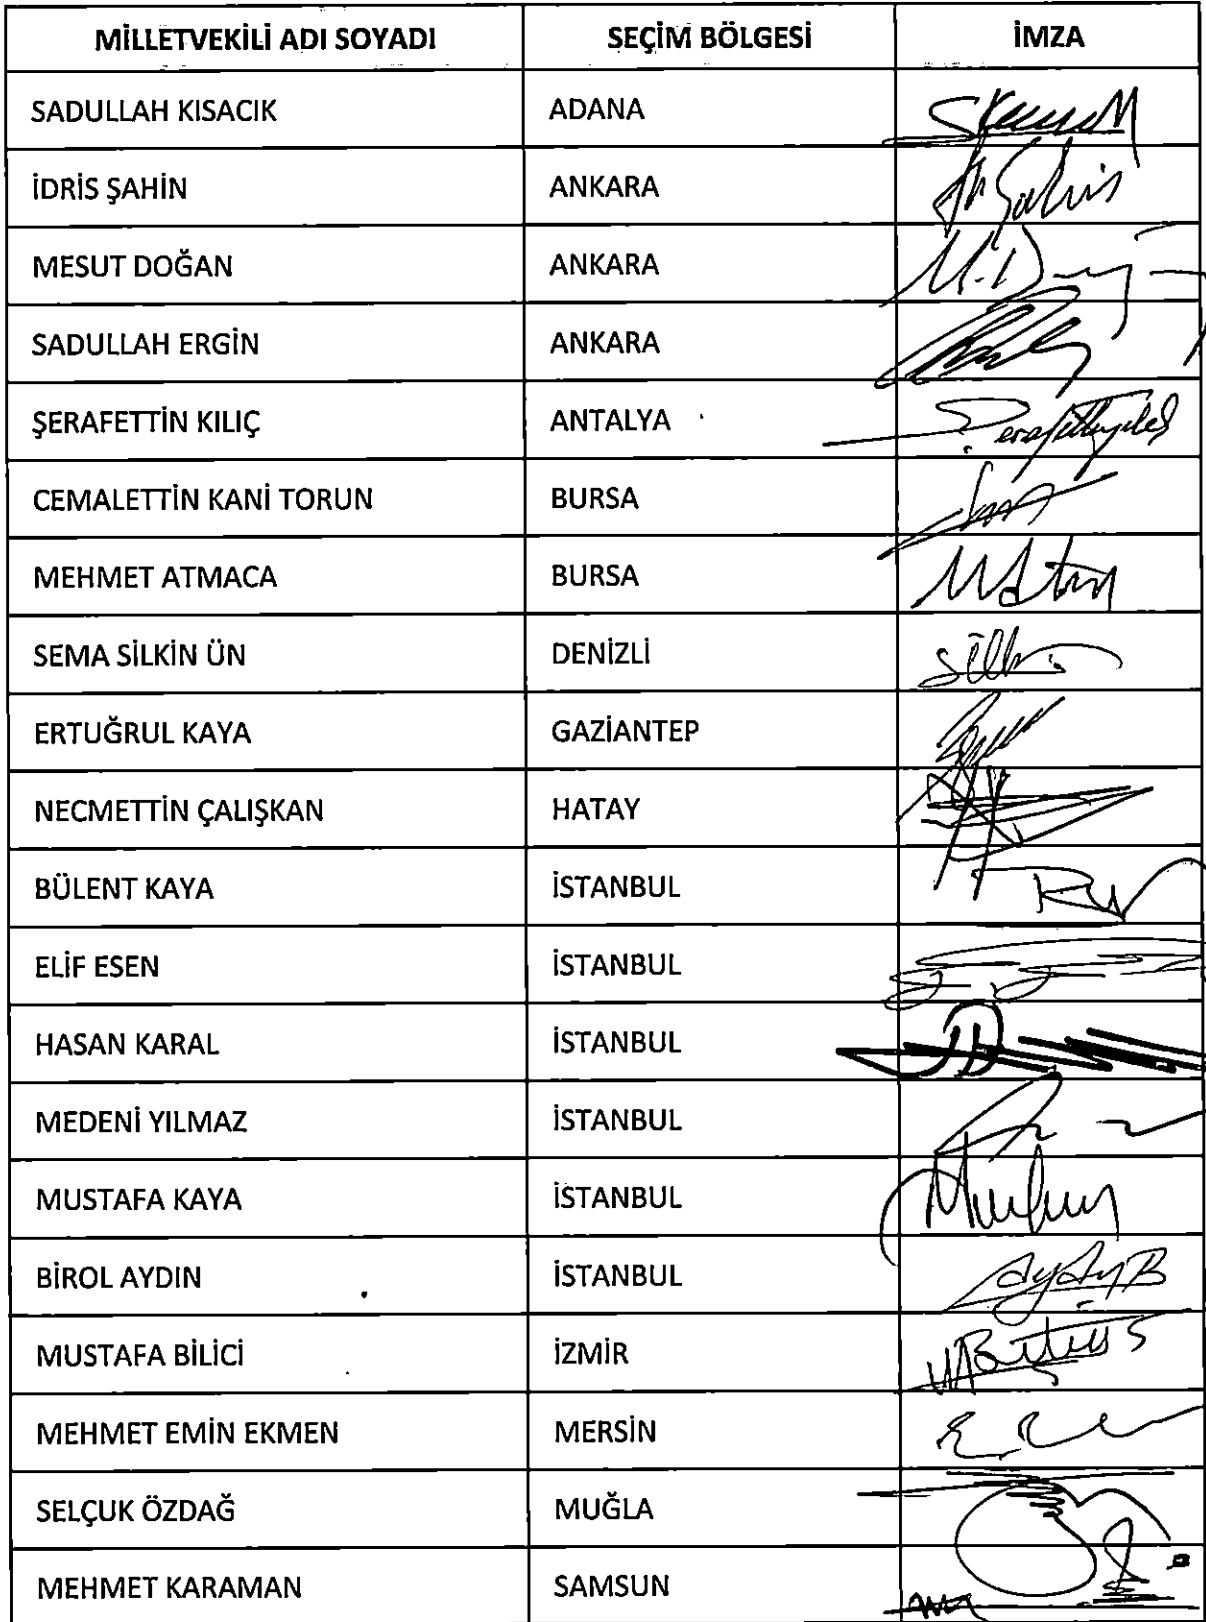 MİLLETVEKİLİ ADI SOYADI SEÇİM BÖLGESİ İMZA
SADULLAH KISACIK ADANA
İDRİS ŞAHİN ANKARA
MESUT DOĞAN ANKARA
SADULLAH ERGİN ANKARA
ŞERAFETTİN KILIÇ ANTALYA
CEMALETTİN KANİ TORUN BURSA
MEHMET ATMACA BURSA
SEMA SİLKİN ÜN DENİZLİ
ERTUĞRUL KAYA GAZİANTEP
NECMETTİN ÇALIŞKAN HATAY
BÜLENT KAYA İSTANBUL
ELİF ESEN İSTANBUL
HASAN KARAL İSTANBUL
MEDENİ YILMAZ İSTANBUL
MUSTAFA KAYA İSTANBUL
BİROL AYDIN İSTANBUL
MUSTAFA BİLİCİ İZMİR
MEHMET EMİN EKMEN MERSİN
SELÇUK ÖZDAĞ MUĞLA
MEHMET KARAMAN SAMSUN